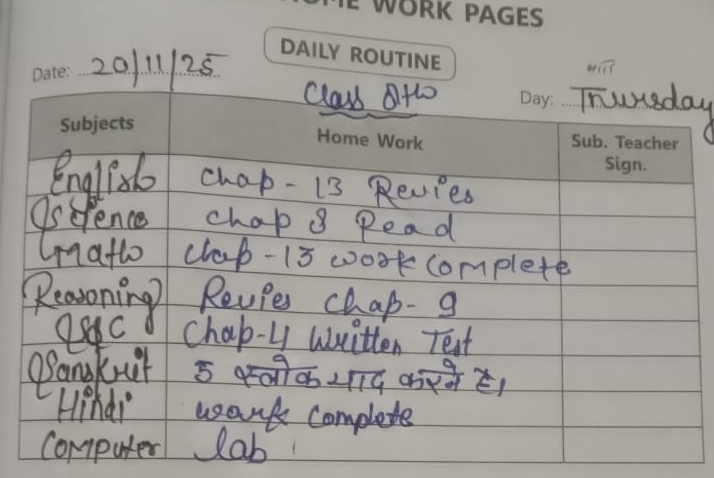 HOME WORK PAGES
DAILY ROUTINE
Date: 20/11/25
Class 8th
Day: Thursday
Subjects Home Work Sub. Teacher Sign.
English Chap - 13 Revies
Science Chap 8 Read
Math Chap - 13 work Complete
Reasoning Revies Chap - 9
SSC Chap-4 Written Test
Sanskrit 5 श्लोक याद करने है।
Hindi work complete
Computer lab